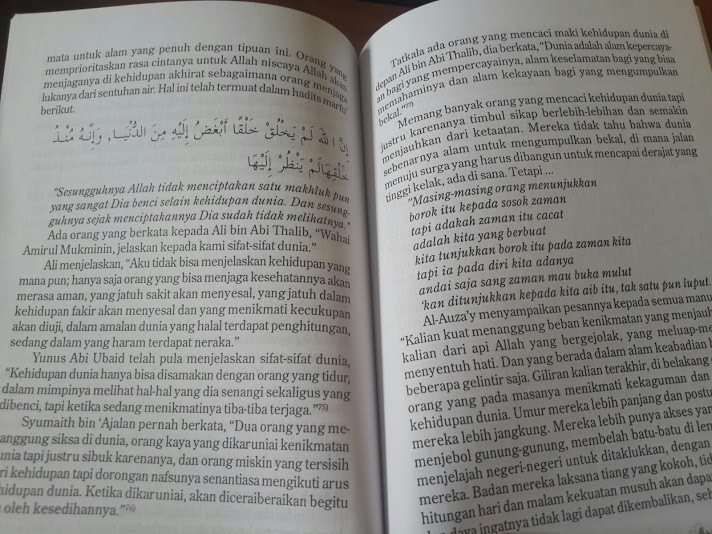 mata untuk alam yang penuh dengan tipuan ini. Orang yang
memprioritaskan rasa cintanya untuk Allah niscaya Allah akan
menjaganya di kehidupan akhirat sebagaimana orang menjaga
lukanya dari sentuhan air. Hal ini telah termuat dalam hadits marfu'
berikut.
إِنَّ اللهَ لَمْ يَخْلُقْ خَلْقًا أَبْغَضُ إِلَيْهِ مِنَ الدُّنْيَا, وَإِنَّهُ مُنْذُ
خَلَقَهَالَمْ يَنْظُرْ إِلَيْهَا
"Sesungguhnya Allah tidak menciptakan satu makhluk pun
yang sangat Dia benci selain kehidupan dunia. Dan sesung-
guhnya sejak menciptakannya Dia sudah tidak melihatnya."
Ada orang yang berkata kepada Ali bin Abi Thalib, "Wahai
Amirul Mukminin, jelaskan kepada kami sifat-sifat dunia."
Ali menjelaskan, "Aku tidak bisa menjelaskan kehidupan yang
mana pun; hanya saja orang yang bisa menjaga kesehatannya akan
merasa aman, yang jatuh sakit akan menyesal, yang jatuh dalam
kehidupan fakir akan menyesal dan yang menikmati kecukupan
akan diuji, dalam amalan dunia yang halal terdapat penghitungan,
sedang dalam yang haram terdapat neraka."
Yunus Abi Ubaid telah pula menjelaskan sifat-sifat dunia,
"Kehidupan dunia hanya bisa disamakan dengan orang yang tidur,
dalam mimpinya melihat hal-hal yang dia senangi sekaligus yang
dibenci, tapi ketika sedang menikmatinya tiba-tiba terjaga."75)
Syumaith bin 'Ajalan pernah berkata, "Dua orang yang me-
anggung siksa di dunia, orang kaya yang dikaruniai kenikmatan
dunia tapi justru sibuk karenanya, dan orang miskin yang tersisih
ri kehidupan tapi dorongan nafsunya senantiasa mengikuti arus
hidupan dunia. Ketika dikaruniai, akan diceraiberaikan begitu
u oleh kesedihannya."76)
Tatkala ada orang yang mencaci maki kehidupan dunia di
depan Ali bin Abi Thalib, dia berkata, "Dunia adalah alam kepercaya-
an bagi yang mempercayainya, alam keselamatan bagi yang bisa
memahaminya dan alam kekayaan bagi yang mengumpulkan
bekal."77)
Memang banyak orang yang mencaci kehidupan dunia tapi
justru karenanya timbul sikap berlebih-lebihan dan semakin
menjauhkan dari ketaatan. Mereka tidak tahu bahwa dunia
sebenarnya alam untuk mengumpulkan bekal, di mana jalan
menuju surga yang harus dibangun untuk mencapai derajat yang
tinggi kelak, ada di sana. Tetapi ...
"Masing-masing orang menunjukkan
borok itu kepada sosok zaman
tapi adakah zaman itu cacat
adalah kita yang berbuat
kita tunjukkan borok itu pada zaman kita
tapi ia pada diri kita adanya
andai saja sang zaman mau buka mulut
'kan ditunjukkan kepada kita aib itu, tak satu pun luput.
Al-Auza'y menyampaikan pesannya kepada semua manu
"Kalian kuat menanggung beban kenikmatan yang menjauh
kalian dari api Allah yang bergejolak, yang meluap-me
menyentuh hati. Dan yang berada dalam alam keabadian h
beberapa gelintir saja. Giliran kalian terakhir, di belakang o
orang yang pada masanya menikmati kekaguman dan
kehidupan dunia. Umur mereka lebih panjang dan postu
mereka lebih jangkung. Mereka lebih punya akses yan
menjebol gunung-gunung, membelah batu-batu di len
menjelajah negeri-negeri untuk ditaklukkan, dengan
mereka. Badan mereka laksana tiang yang kokoh, tid
hitungan hari dan malam kekuatan musuh akan dapa
dan daya ingatnya tidak lagi dapat dikembalikan, seh